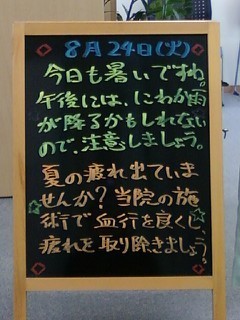 8月24日(火)
今日も暑いですね。
午後には、にわか雨
が降るかもしれない
ので、注意しましょう。
夏の疲れ出ていま
せんか？当院の施
術で血行を良くし、
疲れを取り除きましょう。